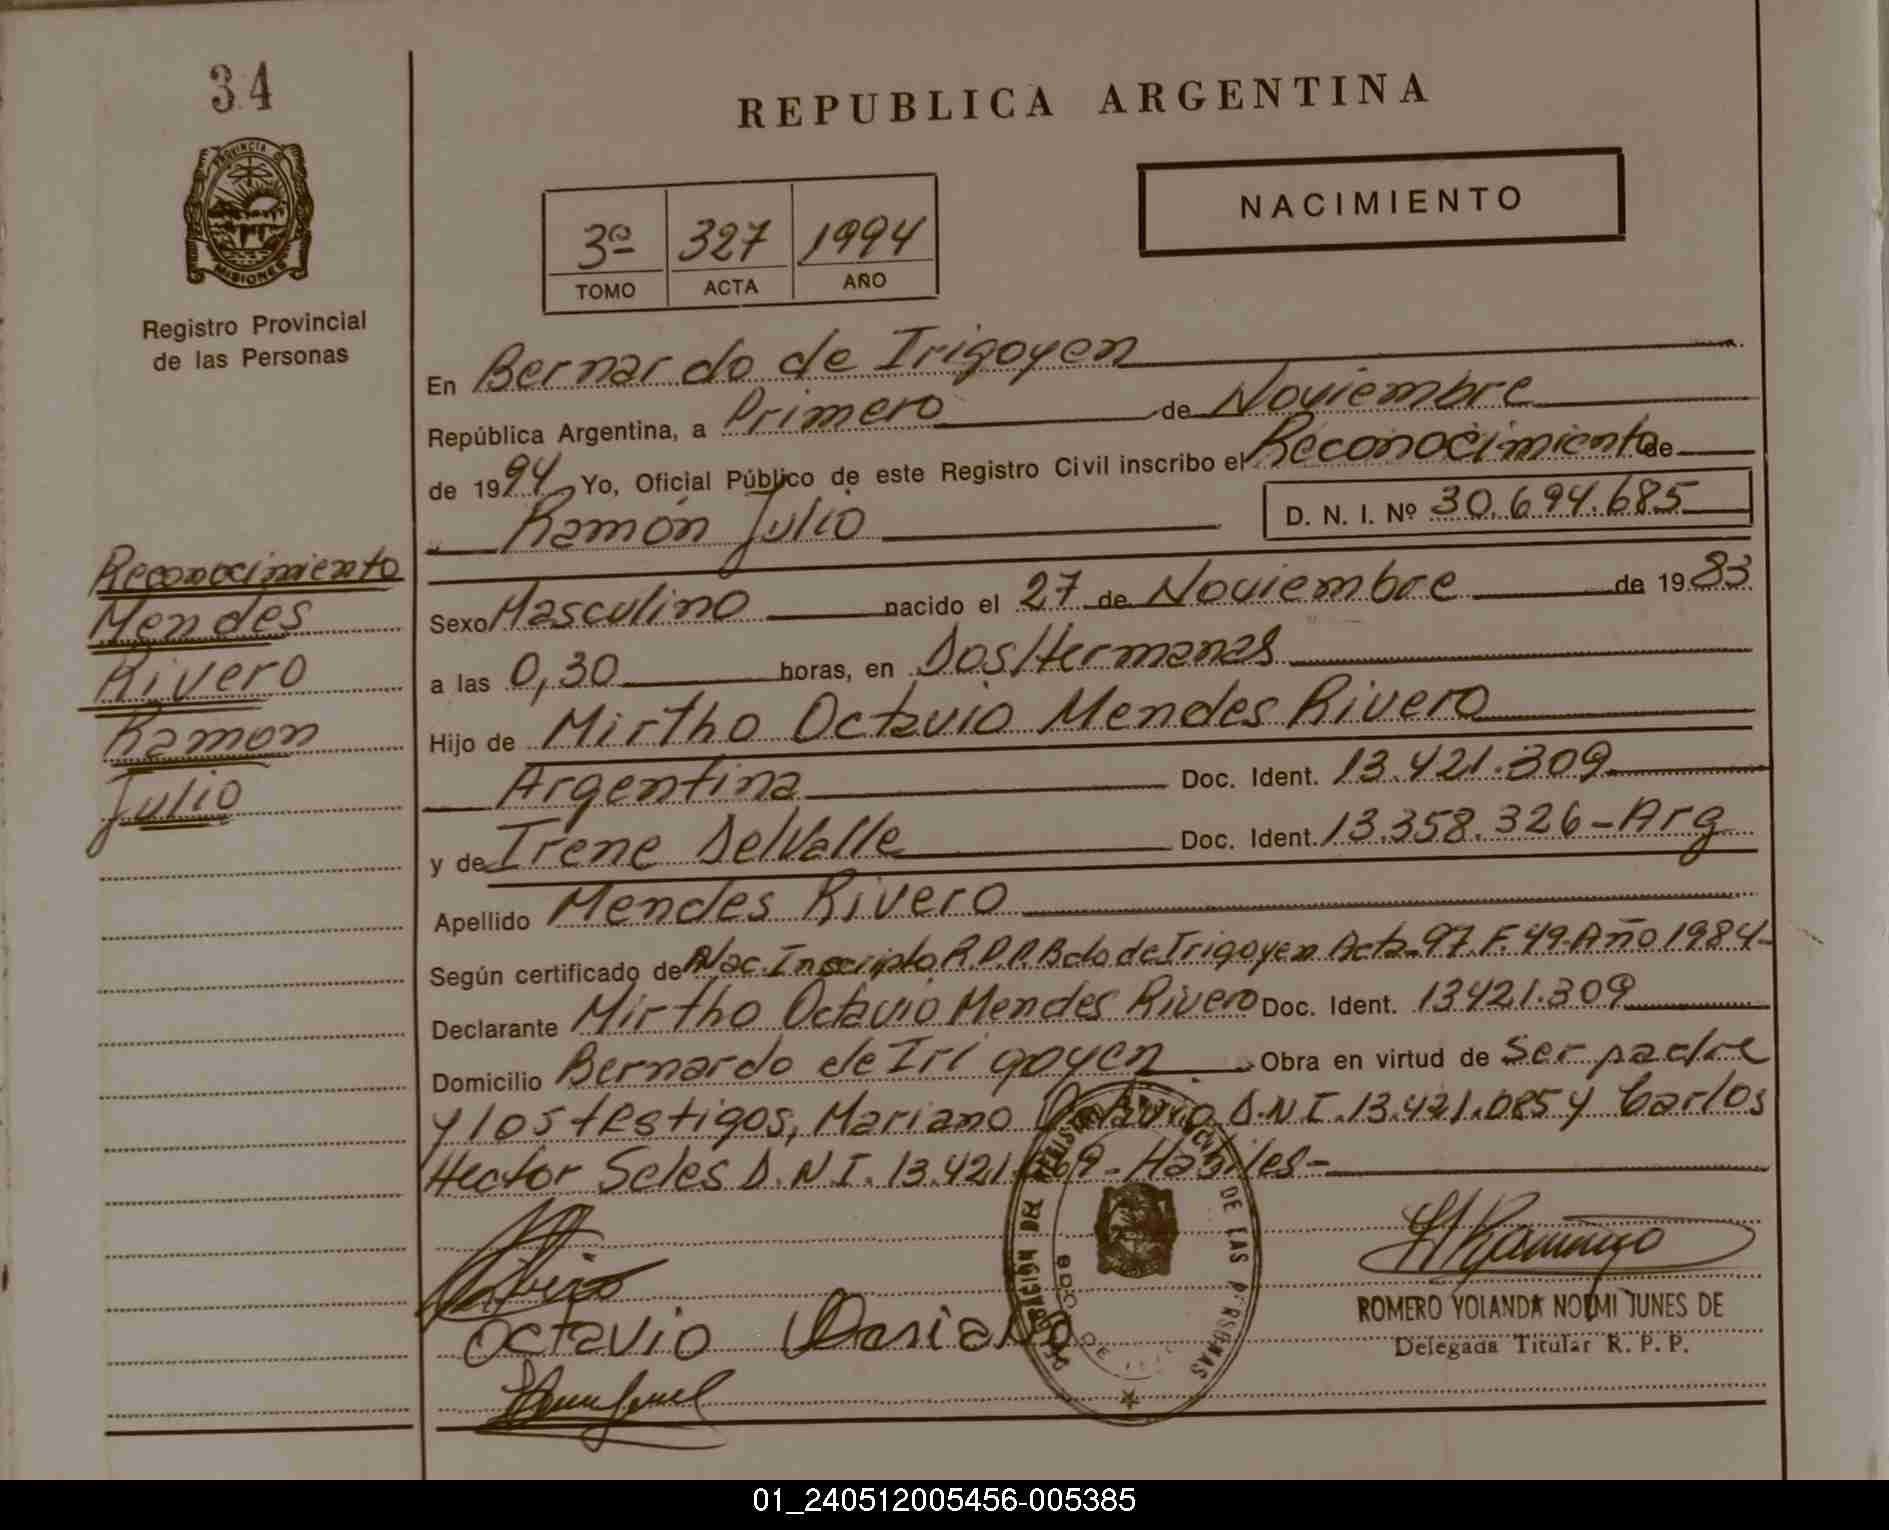 34
PROVINCIA DE
MISIONES
Registro Provincial
de las Personas
Reconocimiento
Mendes
Rivero
Ramon
Julio
REPUBLICA ARGENTINA
NACIMIENTO
3º 327 1994
TOMO ACTA AÑO
En Bernardo de Irigoyen
República Argentina, a Primero de Noviembre
de 1994 Yo, Oficial Público de este Registro Civil inscribo el Reconocimiento de
Ramón Julio D. N. I. Nº 30.694.685
Sexo Masculino nacido el 27 de Noviembre de 1983
a las 0,30 horas, en Dos Hermanas
Hijo de Mirtho Octavio Mendes Rivero
Argentina Doc. Ident. 13.421.309
y de Irene DelValle Doc. Ident. 13.358.326-Arg
Apellido Mendes Rivero
Según certificado de Nac. Inscripto R.P.P. Bdo de Irigoyen Acta-97 F.49-Año 1984-
Declarante Mirtho Octavio Mendes Rivero Doc. Ident. 13421.309
Domicilio Bernardo de Irigoyen Obra en virtud de ser padre
y los testigos, Mariano Octavio D.N.I. 13.421.085 y Carlos
Hector Seles D.N.I. 13.421. - Habiles-
Octavio Mariano
DE LAS PERSONAS
ROMERO YOLANDA NOEMI JUNES DE
Delegada Titular R. P. P.
01_240512005456-005385